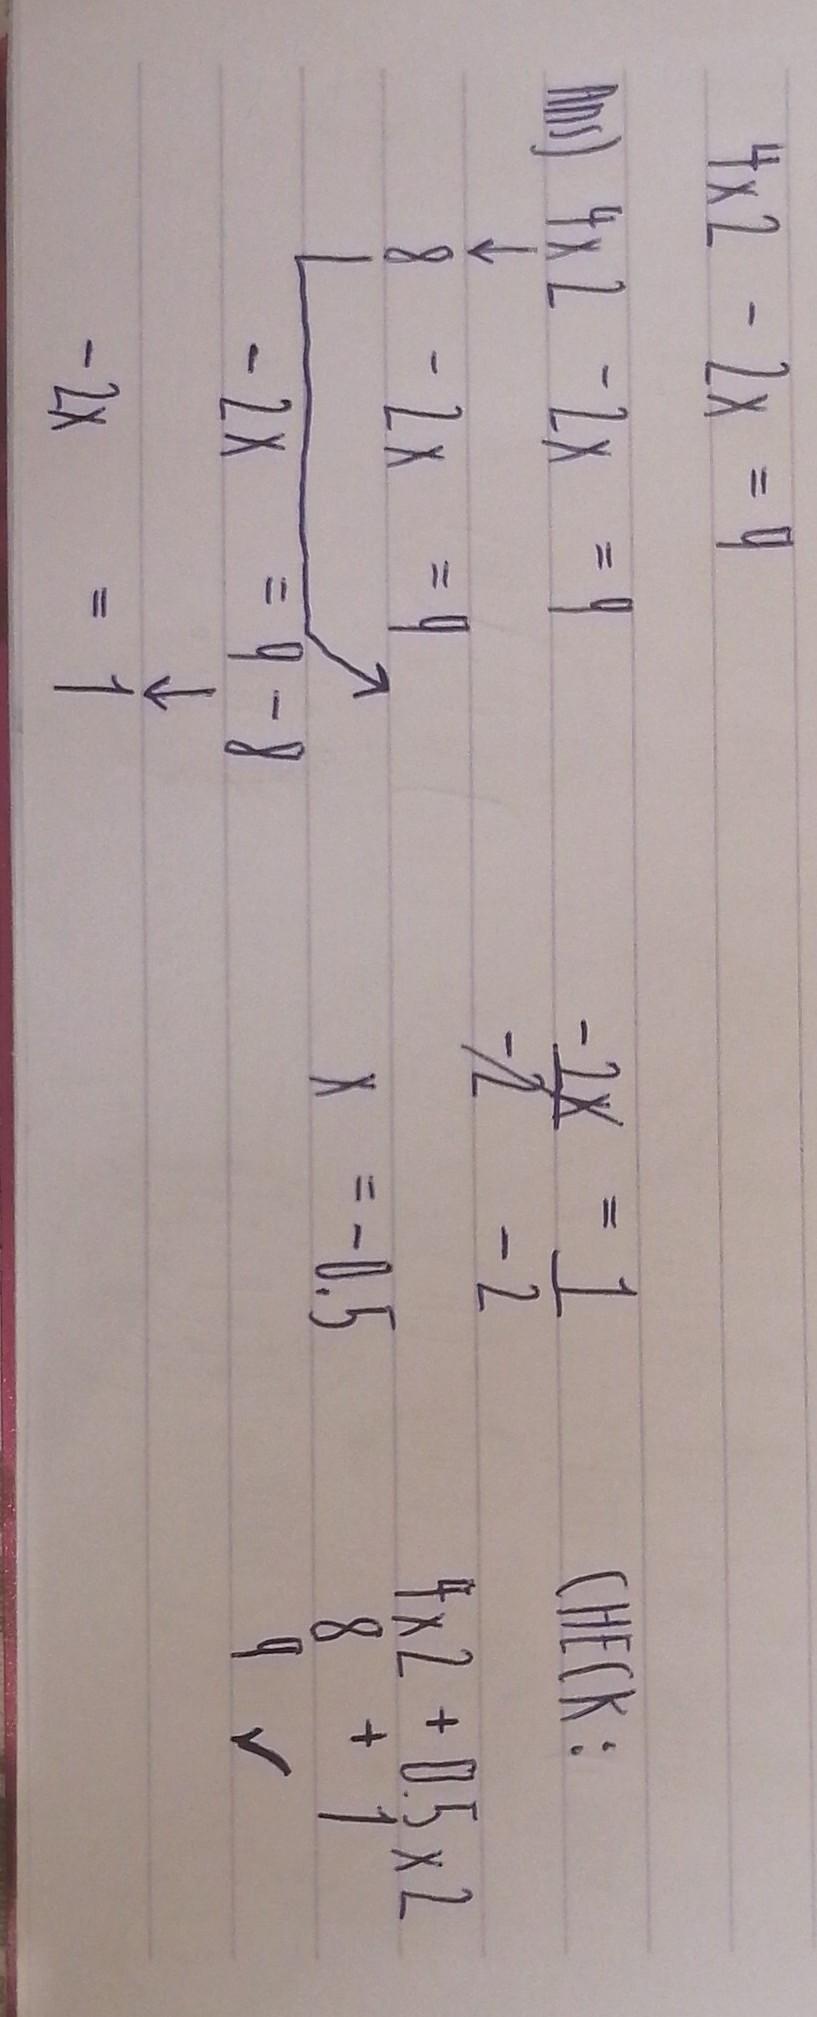 4x2 - 2x = 9
Ans) 4x2 - 2x = 9
↓
8 - 2x = 9
- 2x = 9 - 8
↓
- 2x = 1
-2x = 1
-2 -2
x = -0.5
CHECK:
4x2 + 0.5 x 2
8 + 1
9 ✓